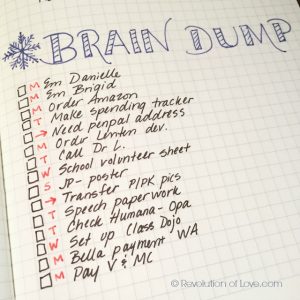 BRAIN DUMP
M Em Danielle
M Em Brigid
M Order Amazon
T Make spending tracker
→ Need penpal address
M Order Lenten dev.
T Call Dr L.
W School volunteer sheet
S JP- poster
→ Transfer P/PK pics
T Speech paperwork
T Check Humana - Opa
W Set up Class Dojo
M Bella payment WA
M Pay V & MC
© Revolution of Love.com